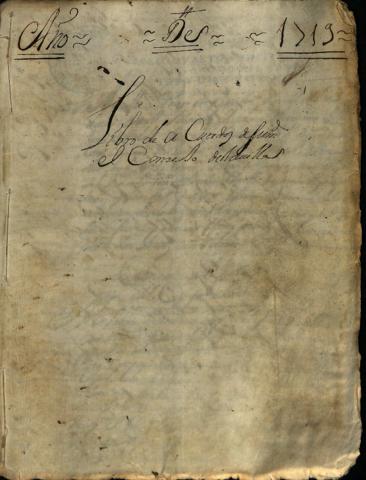 Año ~ ~ De ~ ~ 1713 ~
Libro de a Cuerdos de
el Consejo de